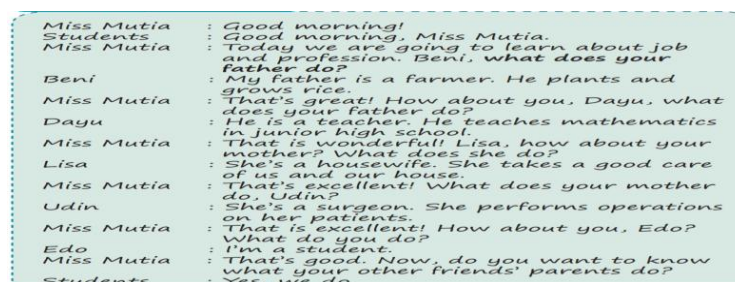 Miss Mutia : Good morning!
Students : Good morning, Miss Mutia.
Miss Mutia : Today we are going to learn about job
and profession. Beni, what does your
father do?
Beni : My father is a farmer. He plants and
grows rice.
Miss Mutia : That's great! How about you, Dayu, what
does your father do?
Dayu : He is a teacher. He teaches mathematics
in junior high school.
Miss Mutia : That is wonderful! Lisa, how about your
mother? What does she do?
Lisa : She's a housewife. She takes a good care
of us and our house.
Miss Mutia : That's excellent! What does your mother
do, Udin?
Udin : She's a surgeon. She performs operations
on her patients.
Miss Mutia : That is excellent! How about you, Edo?
What do you do?
Edo : I'm a student.
Miss Mutia : That's good. Now, do you want to know
what your other friends' parents do?
Students : Yes, we do.